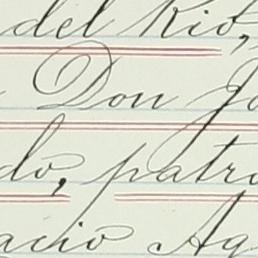 del Rio,
Don Jo
do, patro
acio Ag